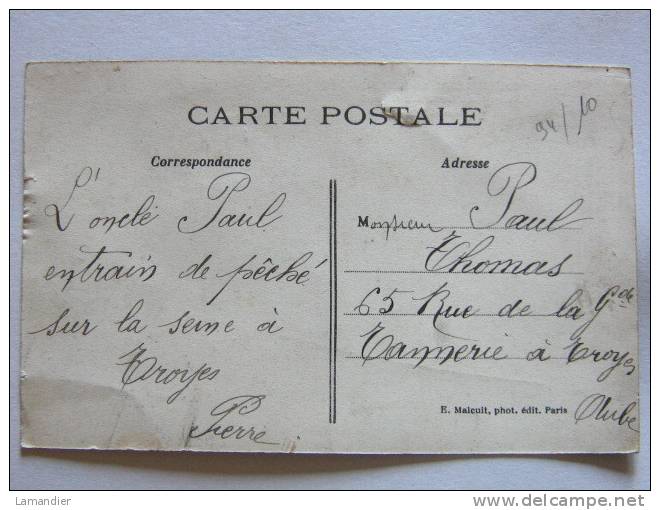 CARTE POSTALE
94/10
Correspondance
L'oncle Paul
entrain de pêché
sur la seine à
Troyes
Pierre.
Adresse
Monsieur Paul
Thomas
65 Rue de la Gde
Tannerie à Troyes
Aube
E. Malcuit, phot. édit. Paris
Lamandier
delcampe.net